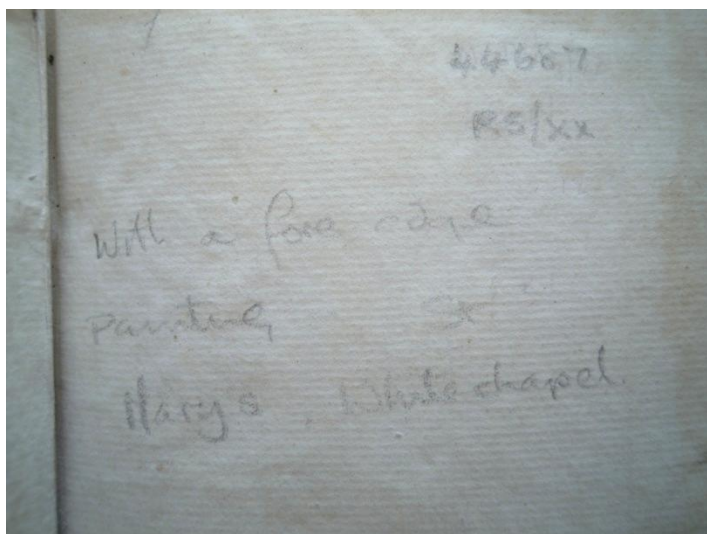 44687
RS/xx
With a fore edge
painting St
Marys, Whitechapel.